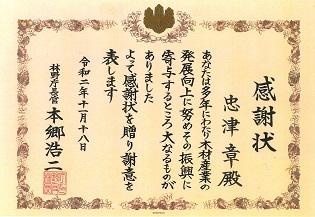 感謝状
忠津章殿
あなたは多年にわたり木材産業の
発展向上に努めその振興に
寄与するところ大なるものが
ありました
よって感謝状を贈り謝意を
表します
令和二年十一月十八日
林野庁長官 本郷浩二